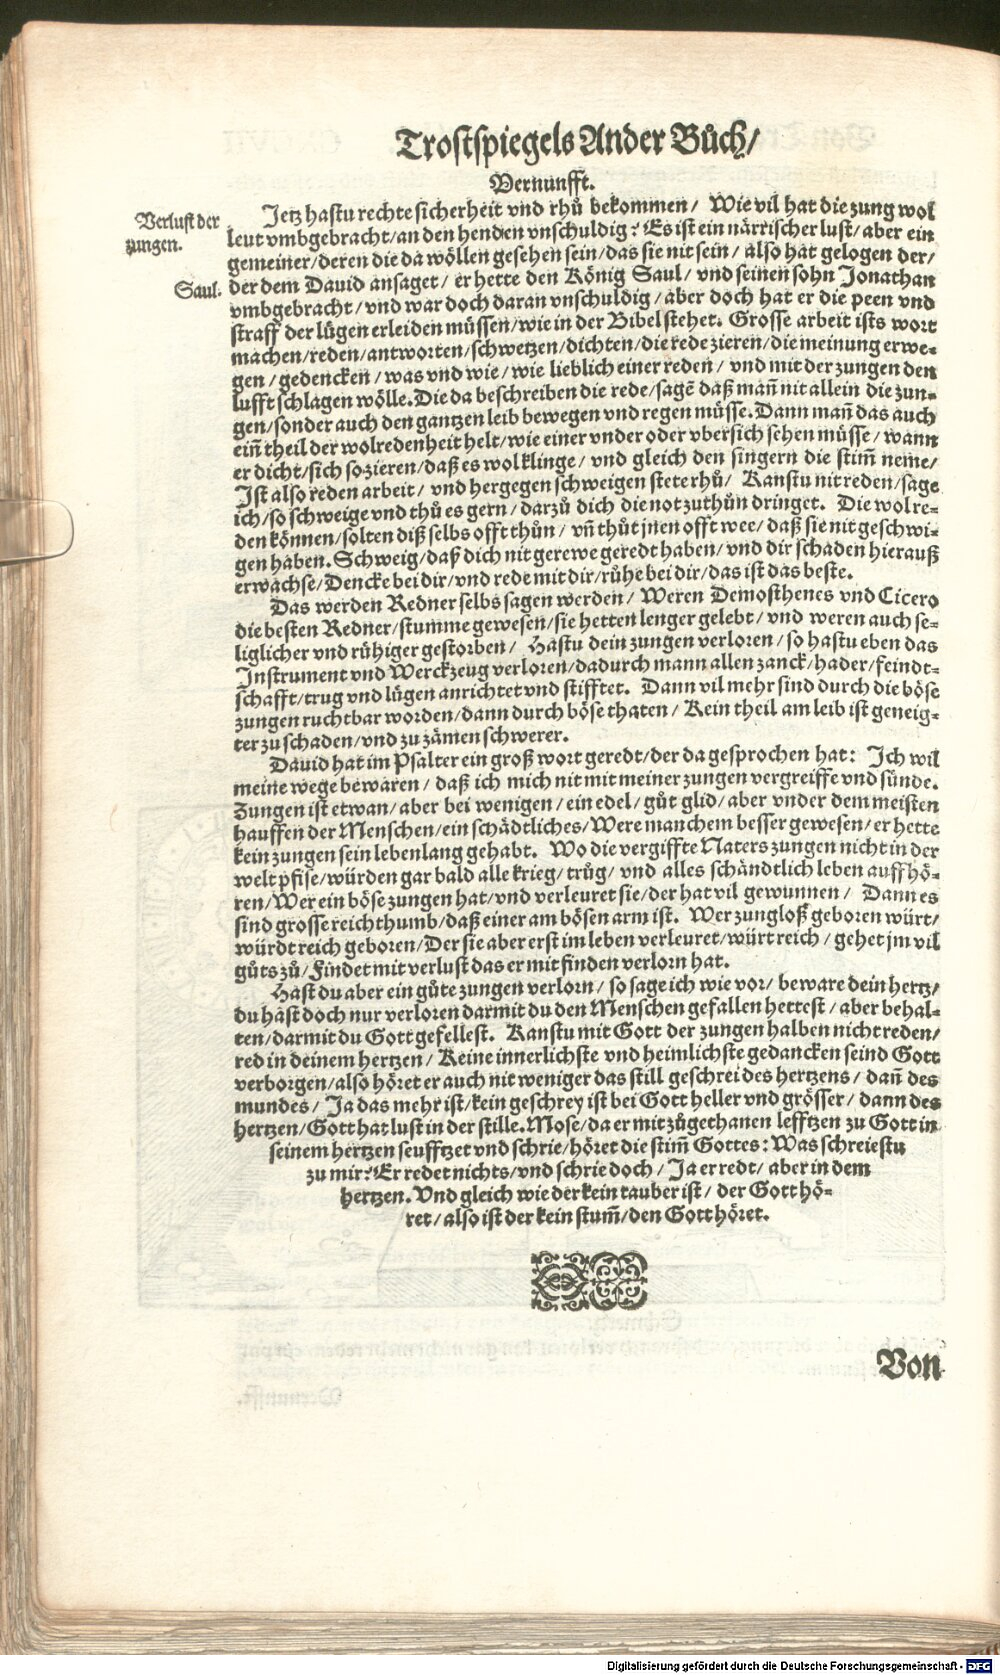 Trostspiegels Ander Bůch/
Vernunfft.
Verlust der
zungen.
Jetz hastu rechte sicherheit vnd rhů bekommen / Wie vil hat die zung wol
leut vmbgebracht/an den henden vnschuldig? Es ist ein närrischer lust/aber ein
gemeiner/deren die da wöllen gesehen sein/das sie nit sein / also hat gelogen der/
Saul.
der dem Dauid ansaget / er hette den König Saul / vnd seinen sohn Jonathan
vmbgebracht / vnd war doch daran vnschuldig / aber doch hat er die peen vnd
straff der lügen erleiden müssen/wie in der Bibel stehet. Grosse arbeit ists wort
machen/reden/antworten/schwetzen/dichten/die rede zieren/die meinung erwe-
gen / gedencken / was vnd wie / wie lieblich einer reden / vnd mit der zungen den
lufft schlagen wölle. Die da beschreiben die rede/sagẽ daß mañ nit allein die zun-
gen/sonder auch den gantzen leib bewegen vnd regen müsse. Dann mañ das auch
eiñ theil der wolredenheit helt/wie einer vnder oder vbersich sehen müsse / wann
er dicht/sich so zieren/daß es wol klinge / vnd gleich den singern die stim̃ neme/
Ist also reden arbeit / vnd hergegen schweigen stete rhů / Kanstu nit reden/sage
ich/so schweige vnd thů es gern / darzů dich die not zuthůn dringet. Die wol re-
den können/solten diß selbs offt thůn / vñ thůt jnen offt wee / daß sie nit geschwi-
gen haben. Schweig/daß dich nit gerewe geredt haben/vnd dir schaden hierauß
erwachse/Dencke bei dir/vnd rede mit dir/růhe bei dir/das ist das beste.
Das werden Redner selbs sagen werden / Weren Demosthenes vnd Cicero
die besten Redner/stumme gewesen/sie hetten lenger gelebt / vnd weren auch se-
liglicher vnd růhiger gestorben / Hastu dein zungen verloren / so hastu eben das
Instrument vnd Werckzeug verloren/dadurch mann allen zanck/hader/feindt-
schafft/trug vnd lügen anrichtet vnd stifftet. Dann vil mehr sind durch die böse
zungen ruchtbar worden/dann durch böse thaten / Kein theil am leib ist geneig-
ter zu schaden/vnd zu zämen schwerer.
Dauid hat im Psalter ein groß wort geredt/der da gesprochen hat: Ich wil
meine wege bewaren / daß ich mich nit mit meiner zungen vergreiffe vnd sünde.
Zungen ist etwan/aber bei wenigen / ein edel / gůt glid/aber vnder dem meisten
hauffen der Menschen/ein schädtliches/Were manchem besser gewesen/er hette
kein zungen sein lebenlang gehabt. Wo die vergiffte Naters zungen nicht in der
welt pfise/würden gar bald alle krieg/ trůg/ vnd alles schändtlich leben auffhö-
ren/Wer ein böse zungen hat/vnd verleuret sie/der hat vil gewunnen / Dann es
sind grosse reichthumb/daß einer am bösen arm ist. Wer zungloß geboren würt/
würdt reich geboren/Der sie aber erst im leben verleuret/würt reich / gehet jm vil
gůts zů/Findet mit verlust das er mit finden verlorn hat.
Hast du aber ein gůte zungen verlorn / so sage ich wie vor / beware dein hertz/
du hast doch nur verloren darmit du den Menschen gefallen hettest / aber behal-
ten/darmit du Gott gefellest. Kanstu mit Gott der zungen halben nicht reden/
red in deinem hertzen / Keine innerlichste vnd heimlichste gedancken seind Gott
verborgen/also höret er auch nit weniger das still geschrei des hertzens / dañ des
mundes / Ja das mehr ist/kein geschrey ist bei Gott heller vnd grösser / dann des
hertzen/Gott hat lust in der stille. Mose/da er mit zůgethanen lefftzen zu Gott in
seinem hertzen seufftzet vnd schrie/höret die stim̃ Gottes: Was schreiestu
zu mir? Er redet nichts/vnd schrie doch / Ja er redt / aber in dem
hertzen. Vnd gleich wie der kein tauber ist / der Gott hö-
ret / also ist der kein stum̃/den Gott höret.
Von
Digitalisierung gefördert durch die Deutsche Forschungsgemeinschaft - DFG